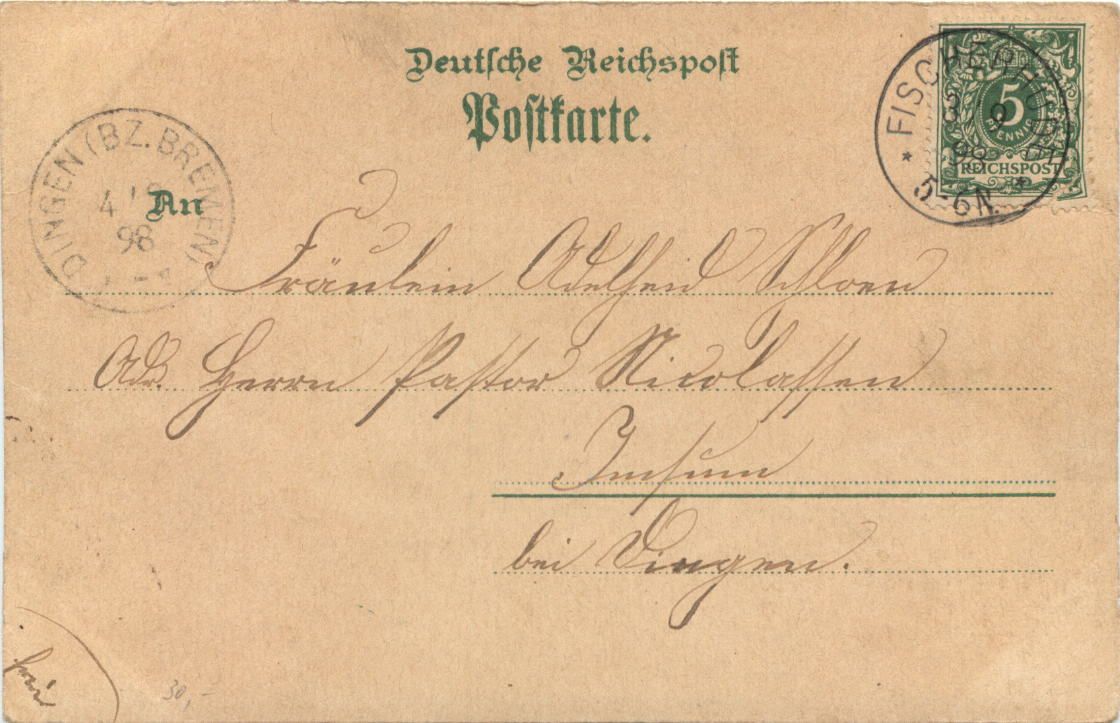 Deutsche Reichspost
Postkarte.
FISCHERHUDE
3 9
98
5-6N.
5
PFENNIG
REICHSPOST
DINGEN (BZ. BREMEN)
4
98
An
Fräulein Adelheid Schloen
Adr. Herrn Pastor Nicolassen
Imsum
bei Dingen.
frei
30,-